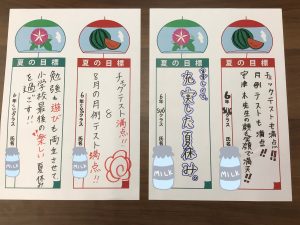 夏の目標
チェックテストも満点!!
月例テストも満点!!
宇津木先生の顔も笑顔で満天!!
6年 クラス 氏名
MILK
夏の目標
充実した夏休み。
6年 クラス 氏名
MILK
夏の目標
チェックテスト満点!!
8月の月例テスト満点!!
6年 クラス 氏名
MILK
夏の目標
勉強も遊びも両立させて
小学校最後の楽しい夏休み
を過ごす!!
6年 クラス 氏名
MILK